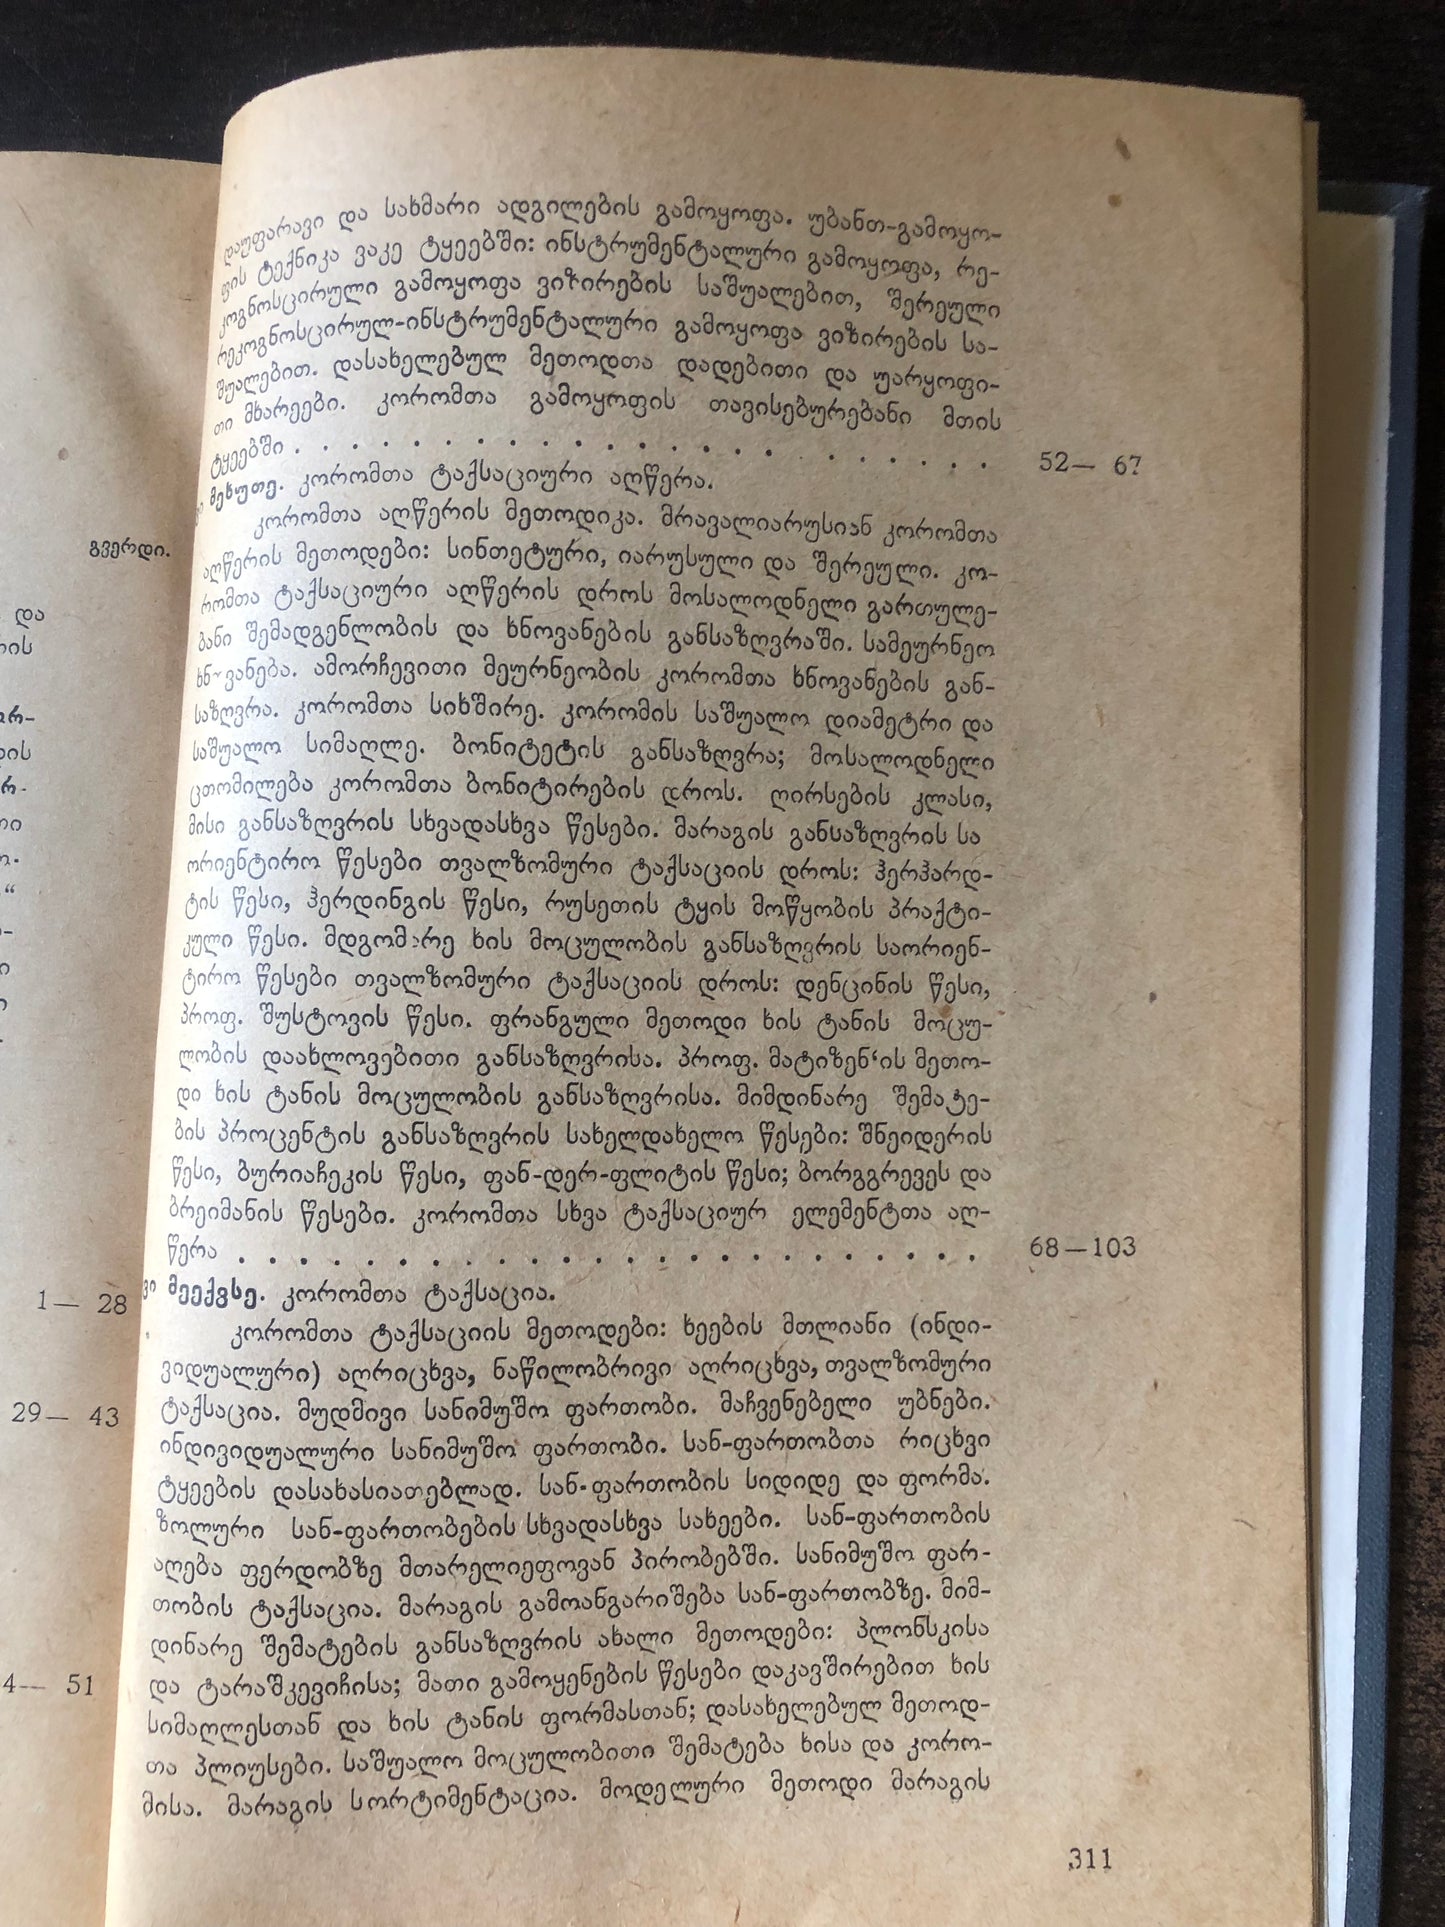 გვერდი.
და
1— 28
29— 43
4— 51
დაუფარავი და სახმარი ადგილების გამოყოფა. უბანთ-გამოყო-
ფის ტექნიკა ვაკე ტყეებში: ინსტრუმენტალური გამოყოფა, რე-
კოგნოსცირული გამოყოფა ვიზირების საშუალებით, შერეული
რეკოგნოსცირულ-ინსტრუმენტალური გამოყოფა ვიზირების სა-
შუალებით. დასახელებულ მეთოდთა დადებითი და უარყოფი-
თი მხარეები. კორომთა გამოყოფის თავისებურებანი მთის
ტყეებში . . . . . . . . . . . . . . . . . . . . . . 52— 67
მეხუთე. კორომთა ტაქსაციური აღწერა.
კორომთა აღწერის მეთოდიკა. მრავალიარუსიან კორომთა
აღწერის მეთოდები: სინთეტური, იარუსული და შერეული. კო-
რომთა ტაქსაციური აღწერის დროს მოსალოდნელი გართულე-
ბანი შემადგენლობის და ხნოვანების განსაზღვრაში. სამეურნეო
ხნოვანება. ამორჩევითი მეურნეობის კორომთა ხნოვანების გან-
საზღვრა. კორომთა სიხშირე. კორომის საშუალო დიამეტრი და
საშუალო სიმაღლე. ბონიტეტის განსაზღვრა; მოსალოდნელი
ცთომილება კორომთა ბონიტირების დროს. ღირსების კლასი,
მისი განსაზღვრის სხვადასხვა წესები. მარაგის განსაზღვრის სა
ორიენტირო წესები თვალზომური ტაქსაციის დროს: ჰერჰარდ-
ტის წესი, ჰერდინგის წესი, რუსეთის ტყის მოწყობის პრაქტი-
კული წესი. მდგომარე ხის მოცულობის განსაზღვრის საორიენ-
ტირო წესები თვალზომური ტაქსაციის დროს: დენცინის წესი,
პროფ. შუსტოვის წესი. ფრანგული მეთოდი ხის ტანის მოცუ-
ლობის დაახლოვებითი განსაზღვრისა. პროფ. მატიზენ‘ის მეთო-
დი ხის ტანის მოცულობის განსაზღვრისა. მიმდინარე შემატე-
ბის პროცენტის განსაზღვრის სახელდახელო წესები: შნეიდერის
წესი, ბურიაჩეკის წესი, ფან-დერ-ფლიტის წესი; ბორგგრევეს და
ბრეიმანის წესები. კორომთა სხვა ტაქსაციურ ელემენტთა აღ-
წერა . . . . . . . . . . . . . . . . . . . . . . . . 68—103
ვი მეექვსე. კორომთა ტაქსაცია.
კორომთა ტაქსაციის მეთოდები: ხეების მთლიანი (ინდი-
ვიდუალური) აღრიცხვა, ნაწილობრივი აღრიცხვა, თვალზომური
ტაქსაცია. მუდმივი სანიმუშო ფართობი. მაჩვენებელი უბნები.
ინდივიდუალური სანიმუშო ფართობი. სან-ფართობთა რიცხვი
ტყეების დასახასიათებლად. სან-ფართობის სიდიდე და ფორმა.
ზოლური სან-ფართობების სხვადასხვა სახეები. სან-ფართობის
აღება ფერდობზე მთარელიეფოვან პირობებში. სანიმუშო ფარ-
თობის ტაქსაცია. მარაგის გამოანგარიშება სან-ფართობზე. მიმ-
დინარე შემატების განსაზღვრის ახალი მეთოდები: პლონსკისა
და ტარაშკევიჩისა; მათი გამოყენების წესები დაკავშირებით ხის
სიმაღლესთან და ხის ტანის ფორმასთან; დასახელებულ მეთოდ-
თა პლიუსები. საშუალო მოცულობითი შემატება ხისა და კორო-
მისა. მარაგის სორტიმენტაცია. მოდელური მეთოდი მარაგის
311